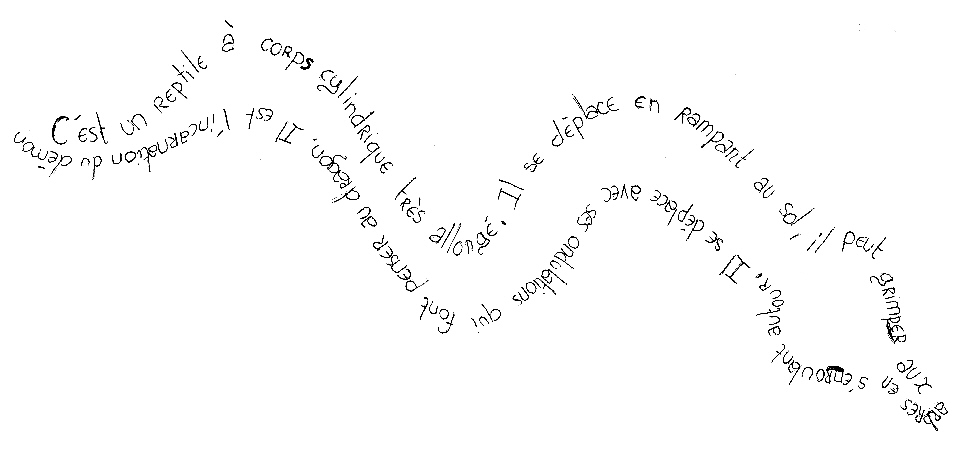 C'est un reptile à corps cylindrique très allongé. Il se déplace en rampant au sol, il peut grimper aux arbres en s'enroulant autour. Il se déplace avec ses ondulations qui font penser au dragon. Il est l'incarnation du démon